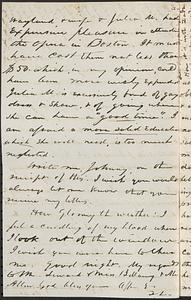 Wayland & wife & Julia M. had
Expensive pleasure in attending
the Opera in Boston. It must
have cost them not less than
$50. which, in my opinion, might
have been more wisely expended.
Julia M. is excessively fond of gay
dress & show, & of going where
she can have a "good time". I
am afraid a more solid education
which she will need, is too much
neglected.
Write me Johnny, on the
receipt of this. I wish you would
always let me know what you
receive my letters.
How Gloomy the weather! I
feel a curdling of my blood when
I look out of the window.
I wish you were nearer to
me. Good night. My regards
to Mr Seward & Miss Billings & Mr
Allen. God bless you. Aff.